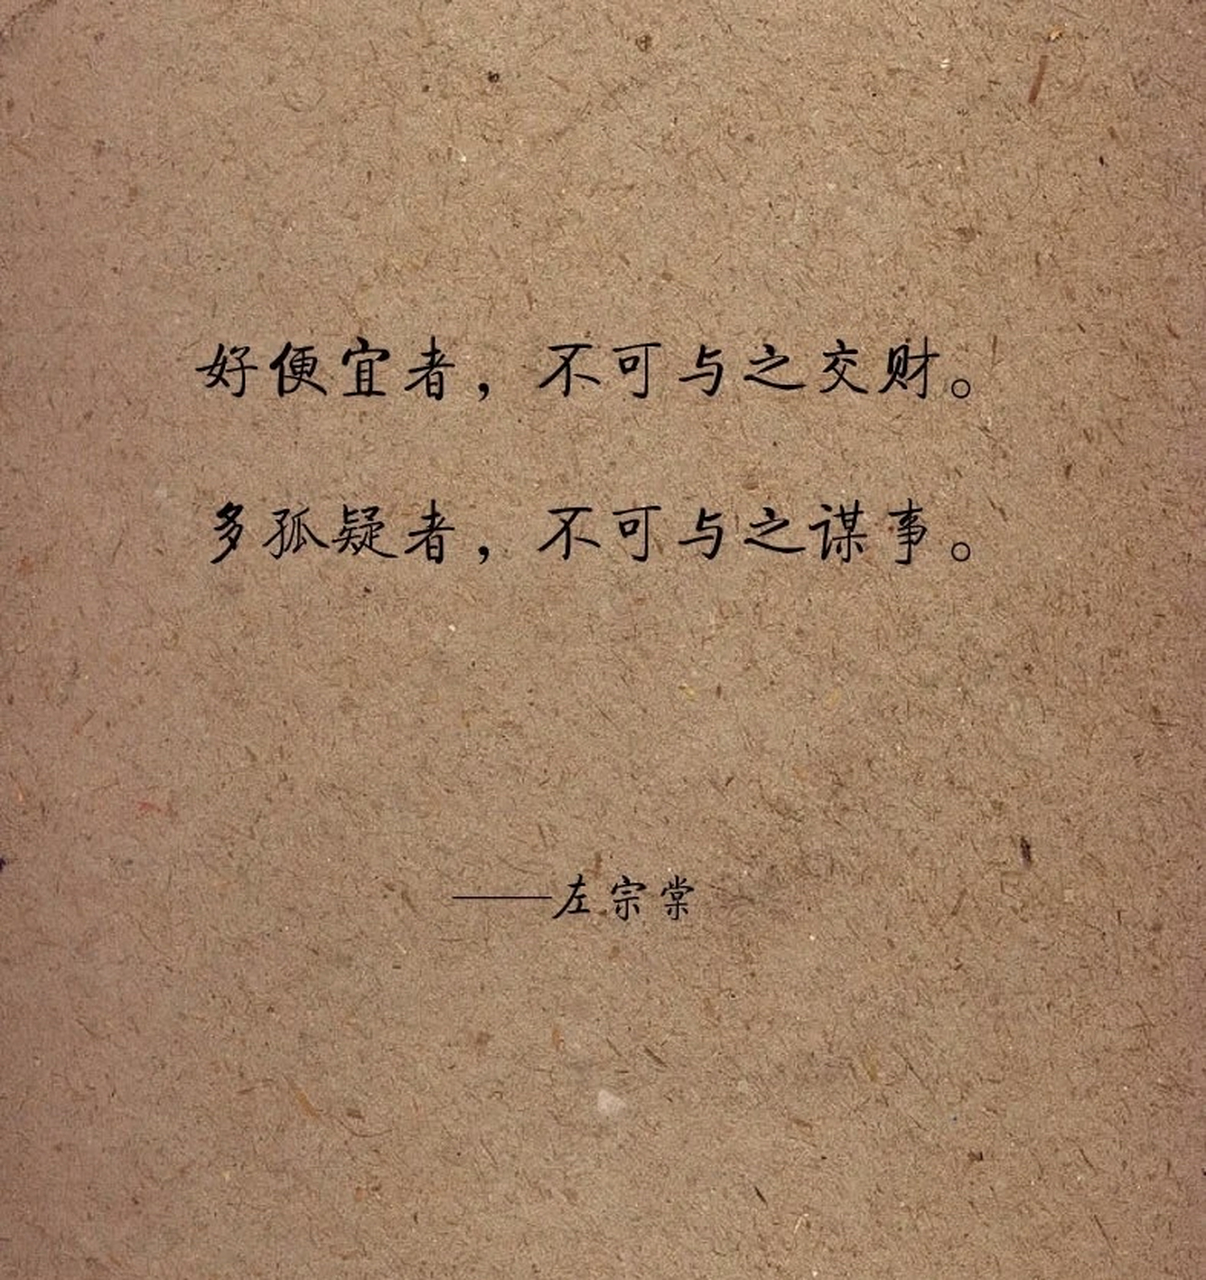 好便宜者，不可与之交财。
多孤疑者，不可与之谋事。
——左宗棠